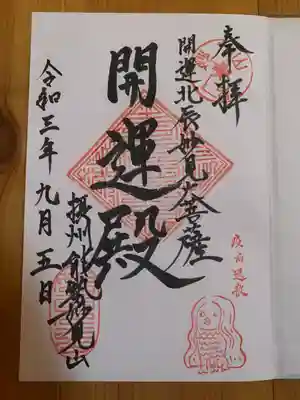 奉拝
開運北辰妙見大菩薩
開運殿
摂州能勢妙見山
令和三年九月五日
疫病退散